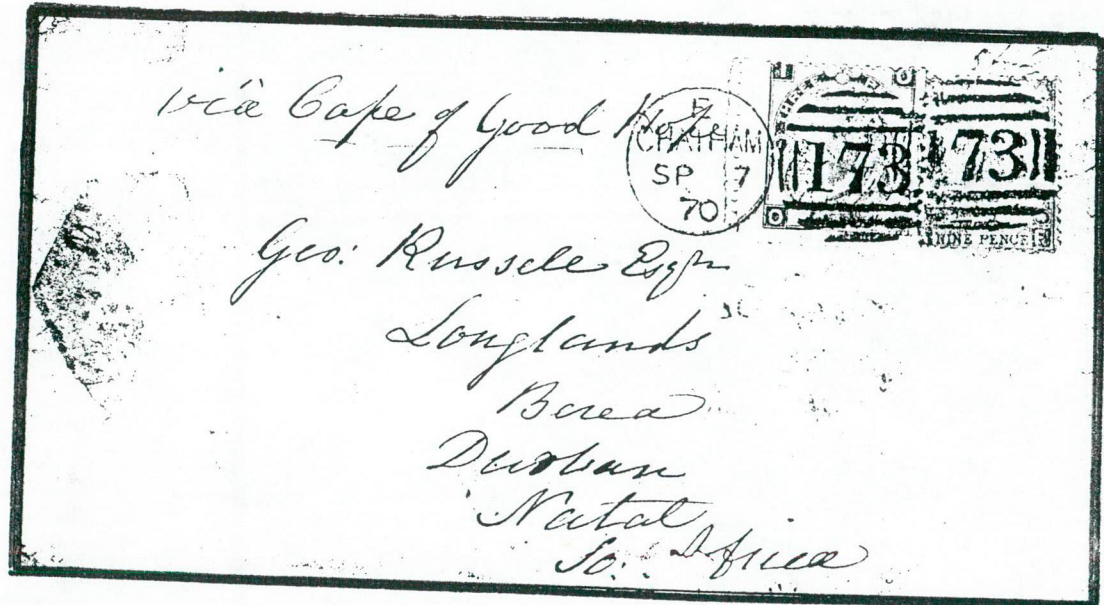 via Cape of Good Hope
F
CHATHAM
SP 7
70
I O
THREE PENCE
173 173
O I
NINE PENCE
Geo: Russele Esqre
Longlands
Berea
Durban
Natal
So: Africa